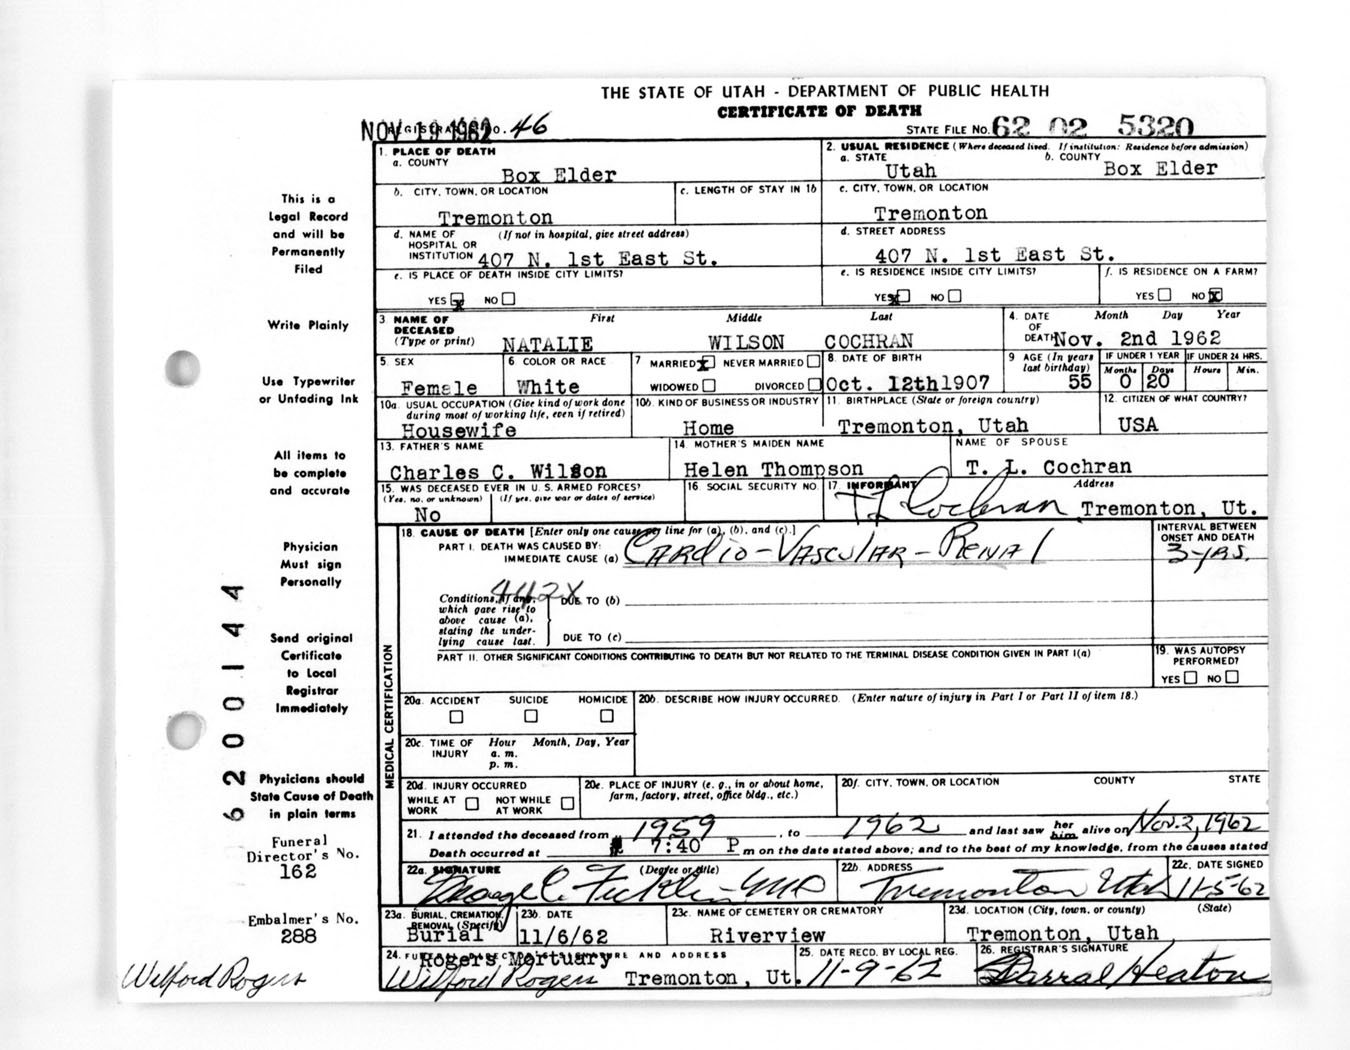 THE STATE OF UTAH - DEPARTMENT OF PUBLIC HEALTH
CERTIFICATE OF DEATH
NOV 19 1962 REGISTRAR'S NO. 46
STATE FILE NO. 62 02 5320
1. PLACE OF DEATH
a. COUNTY
Box Elder
2. USUAL RESIDENCE (Where deceased lived. If institution: Residence before admission)
a. STATE b. COUNTY
Utah Box Elder
b. CITY, TOWN, OR LOCATION
Tremonton
c. LENGTH OF STAY IN 1b
c. CITY, TOWN, OR LOCATION
Tremonton
d. NAME OF (If not in hospital, give street address)
HOSPITAL OR
INSTITUTION 407 N. 1st East St.
d. STREET ADDRESS
407 N. 1st East St.
e. IS PLACE OF DEATH INSIDE CITY LIMITS?
YES x NO
e. IS RESIDENCE INSIDE CITY LIMITS?
YES x NO
f. IS RESIDENCE ON A FARM?
YES NO x
3 NAME OF First Middle Last
DECEASED
(Type or print) NATALIE WILSON COCHRAN
4. DATE Month Day Year
OF
DEATH Nov. 2nd 1962
5. SEX
Female
6 COLOR OR RACE
White
7 MARRIED x NEVER MARRIED
WIDOWED DIVORCED
8. DATE OF BIRTH
Oct. 12th 1907
9 AGE (In years
last birthday)
55
IF UNDER 1 YEAR IF UNDER 24 HRS.
Months Days Hours Min.
0 20
10a. USUAL OCCUPATION (Give kind of work done
during most of working life, even if retired)
Housewife
10b. KIND OF BUSINESS OR INDUSTRY
Home
11. BIRTHPLACE (State or foreign country)
Tremonton, Utah
12. CITIZEN OF WHAT COUNTRY?
USA
13. FATHER'S NAME
Charles C. Wilson
14. MOTHER'S MAIDEN NAME
Helen Thompson
NAME OF SPOUSE
T. L. Cochran
15. WAS DECEASED EVER IN U. S. ARMED FORCES?
(Yes, no, or unknown) (If yes, give war or dates of service)
No
16. SOCIAL SECURITY NO.
17. INFORMANT Address
T L Cochran Tremonton, Ut.
18. CAUSE OF DEATH [Enter only one cause per line for (a), (b), and (c).]
PART I. DEATH WAS CAUSED BY:
IMMEDIATE CAUSE (a) Cardio-Vascular-Renal
INTERVAL BETWEEN
ONSET AND DEATH
3 yrs.
442X
Conditions, if any,
which gave rise to
above cause (a),
stating the under-
lying cause last.
DUE TO (b)
DUE TO (c)
PART II. OTHER SIGNIFICANT CONDITIONS CONTRIBUTING TO DEATH BUT NOT RELATED TO THE TERMINAL DISEASE CONDITION GIVEN IN PART I(a)
19. WAS AUTOPSY
PERFORMED?
YES NO
MEDICAL CERTIFICATION
20a. ACCIDENT SUICIDE HOMICIDE
20b. DESCRIBE HOW INJURY OCCURRED. (Enter nature of injury in Part I or Part II of item 18.)
20c. TIME OF Hour Month, Day, Year
INJURY a. m.
p. m.
20d. INJURY OCCURRED
WHILE AT NOT WHILE
WORK AT WORK
20e. PLACE OF INJURY (e. g., in or about home,
farm, factory, street, office bldg., etc.)
20f. CITY, TOWN, OR LOCATION COUNTY STATE
21. I attended the deceased from 1959, to 1962 and last saw her him alive on Nov. 2, 1962
Death occurred at 7:40 P m on the date stated above; and to the best of my knowledge, from the causes stated
22a. SIGNATURE (Degree or title)
MD
22b. ADDRESS
Tremonton Utah
22c. DATE SIGNED
11-5-62
23a. BURIAL, CREMATION,
REMOVAL (Specify)
Burial
23b. DATE
11/6/62
23c. NAME OF CEMETERY OR CREMATORY
Riverview
23d. LOCATION (City, town, or county) (State)
Tremonton, Utah
24. FUNERAL DIRECTOR'S SIGNATURE AND ADDRESS
Rogers Mortuary
Wilford Rogers Tremonton, Ut.
25. DATE RECD. BY LOCAL REG.
11-9-62
26. REGISTRAR'S SIGNATURE
Darral Heaton
This is a
Legal Record
and will be
Permanently
Filed
Write Plainly
Use Typewriter
or Unfading Ink
All items to
be complete
and accurate
Physician
Must sign
Personally
Send original
Certificate
to Local
Registrar
Immediately
Physicians should
State Cause of Death
in plain terms
Funeral
Director's No.
162
Embalmer's No.
288
Wilford Rogers
6200144